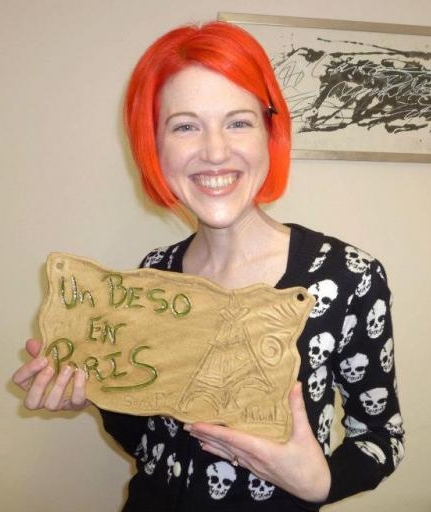 Un BESO
EN
PARIS